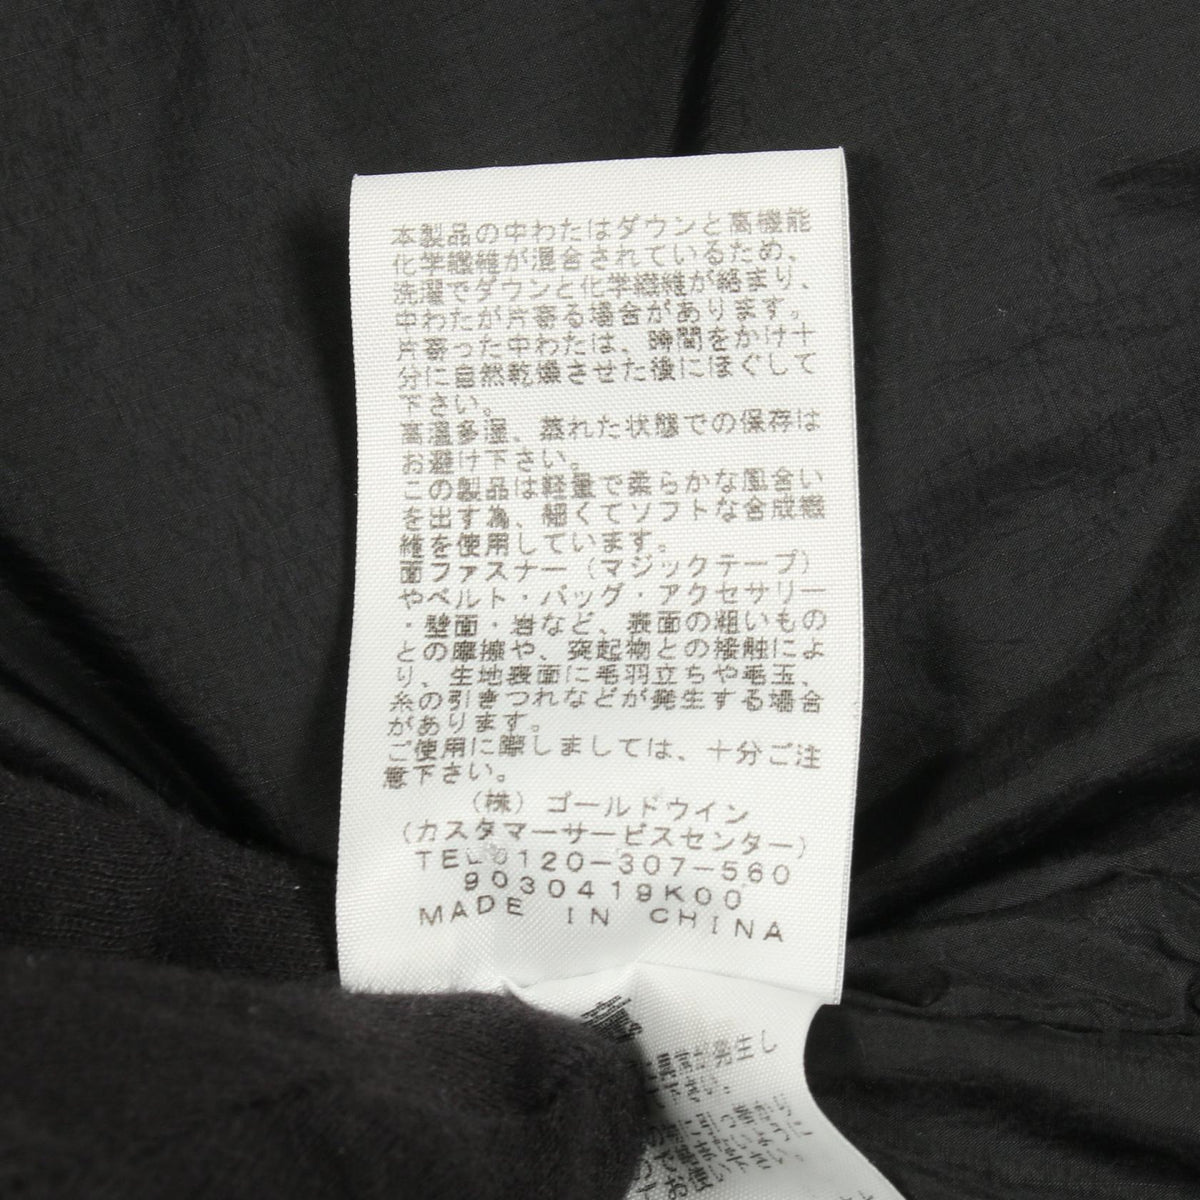 本製品の中わたはダウンと高機能
化学繊維が混合されているため、
洗濯でダウンと化学繊維が絡まり、
中わたが片寄る場合があります。
片寄った中わたは、時間をかけ十
分に自然乾燥させた後にほぐして
下さい。
高温多湿、蒸れた状態での保存は
お避け下さい。
この製品は軽量で柔らかな風合い
を出す為、細くてソフトな合成繊
維を使用しています。
面ファスナー(マジックテープ)
やベルト・バッグ・アクセサリー
・壁面・岩など、表面の粗いもの
との摩擦や、突起物との接触によ
り、生地表面に毛羽立ちや毛玉、
糸の引きつれなどが発生する場合
があります。
ご使用に際しましては、十分ご注
意下さい。
(株)ゴールドウイン
(カスタマーサービスセンター)
TEL0120-307-560
9030419K00
MADE IN CHINA
発生し